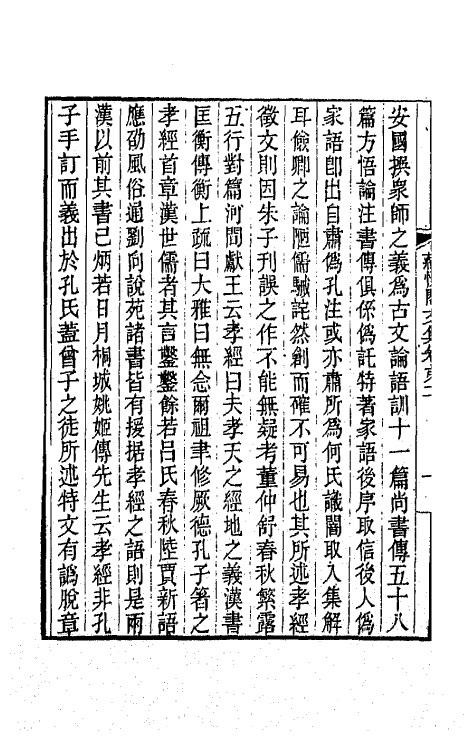 安國撰衆師之義爲古文論語訓十一篇尚書傳五十八
篇方悟論注書傳俱係僞託特著家語後序取信後人僞
家語卽出自肅僞孔注或亦肅所爲何氏識闇取入集解
耳儉卿之論陋儒駴詫然創而確不可易也其所述孝經
徵文則因朱子刊誤之作不能無疑考董仲舒春秋繁露
五行對篇河間獻王云孝經曰夫孝天之經地之義漢書
匡衡傳衡上疏曰大雅曰無念爾祖聿修厥德孔子箸之
孝經首章漢世儒者其言鑿鑿餘若呂氏春秋陸賈新語
應劭風俗通劉向說苑諸書皆有援据孝經之語則是兩
漢以前其書已炳若日月桐城姚姬傳先生云孝經非孔
子手訂而義出於孔氏蓋曾子之徒所述特文有譌脫章